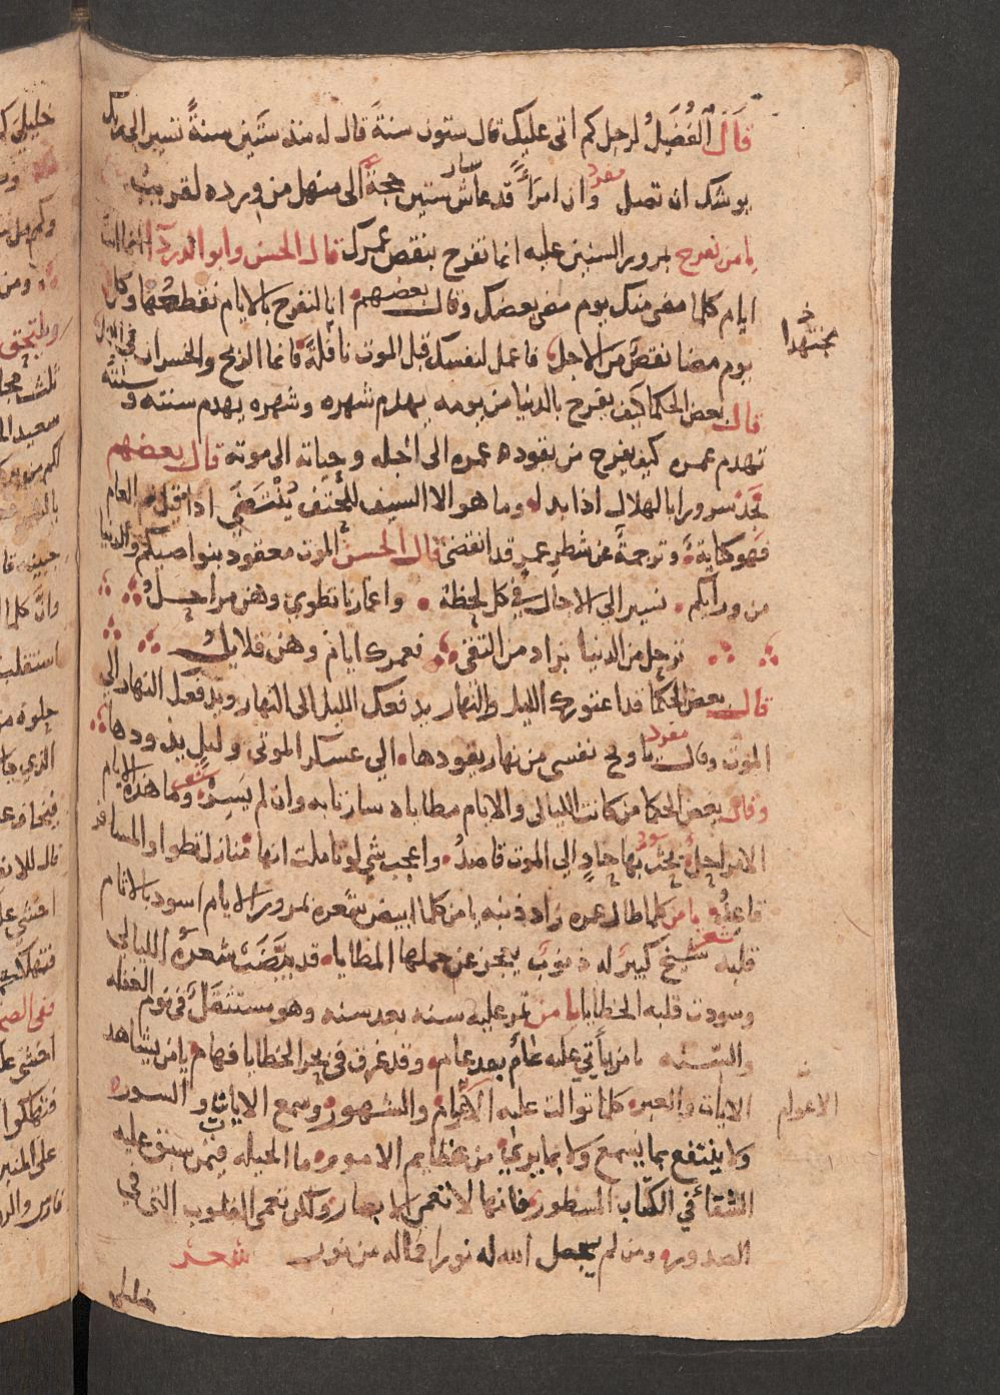 قال الفُضَيلُ لرجل كم أتى عليك قال ستون سنة قال له منذ ستين سنةً تسير الى ربك
يوشك ان تصل مفرد وان امرأً قد سار عاش ستين حجة الى منهل من ورده لقريب
يامن يفرح بمرور السنين عليه انما تفرح بنقص عمرك قال الحسن وابو الدردآ انما انت
ايام كلما مضى منك يوم مضى بعضك وقال بعضهم انا لنفرح بالايام نقطعها وكل
يوم مضا نقصٌ من الاجل فاعمل لنفسك قبل الموت فانما الربح والخسران في العمل
مجتهدا
قال بعض الحكما كيف يفرح بالدنيا من يومه يهدم شهره وشهره يهدم سنته و سنته
تهدم عمره كيف يفرح من يقوده عمره الى اجله وحياته الى موته قال بعضهم
تَجَدْ سرورا بالهلال اذا بدا له وما هو الا السيف للحتف يُنْتَضَى اذا قيل تم العام
فهو كناية وترجمةً عن شطرِ عمرٍ قد انقضى قال الحسن الموت معقود بنواصيكم والدنيا
من ورايكم نسير الى الاجال في كل لحظة واعمارنا تطوي وهن مراحلُ
ترحل من الدنيا بزاد من التقى فعمرك ايام وهن قلايل
قال بعض الحكما قد اعتورك الليل والنهار يدفعك الليل الى النهار ويدفعك النهار الى
الموت وقال مفرد يا ويح نفسى من نهار يقودها الي عسكر الموتى وليل يذودها
وقال بعض الحكما من كانت الليالى والايام مطاياه سارتا به وان لم يَسِرْ شعر وما هذه الايام
الا مراحلٌ يحثُ بها حادٍ الى الموت قاصدُ واعجب شي لو تاملت انها منازل تطوا والمسافر
قاعدُ يا من كلما طال عمره زاد ذنبه يا من كلما ابيض شعره بمرور الايام اسود بالاثام
قلبه شعر شيخ كبيرٌ له ذنوبٌ يعجز عن حملها المطايا قد بيَّضَتْ شعرهُ الليالي
وسودت قلبه الخطايا يا من تمر عليه سنه بعد سنه وهو مستثقلٌ في نوم الغفله
والسنه يا من ياتي عليه عامٌ بعد عام وقد غرق في بحر الخطايا فهام يا من يشاهد
الايات والعبر كلما توالت عليه الاعوام والشهور وسمع الايات والسوره
الاعوام
ولا ينتفع بما يسمع ولا بما يرى من عظايم الامور ما الحيله فيمن سبق عليه
الشقا في الكتاب المسطور فانها لا تعمى الابصار ولكن تعمى القلوب التى في
الصدور ومن لم يجعل الله له نورا فماله من نور شعر
خليلى